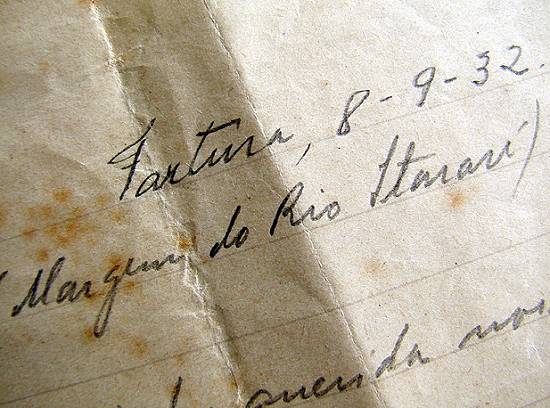 Fartura, 8-9-32.
(Margem do Rio Itararé)
querida